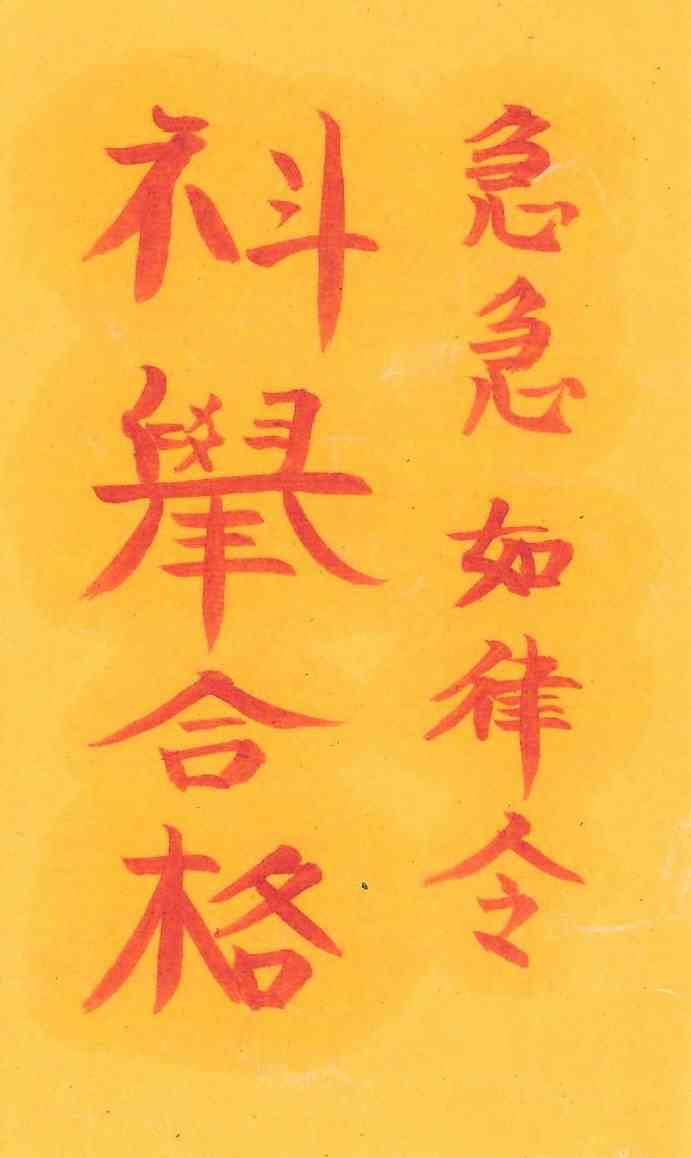 急急如律令
科舉合格